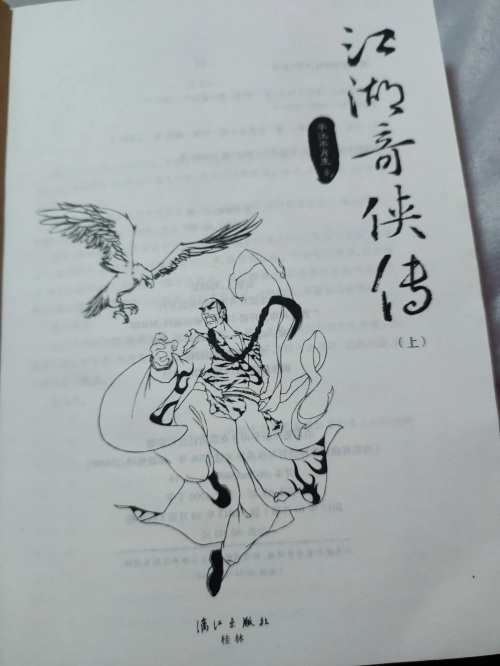 江湖奇侠传
平江不肖生 著
（上）
漓江出版社
桂林